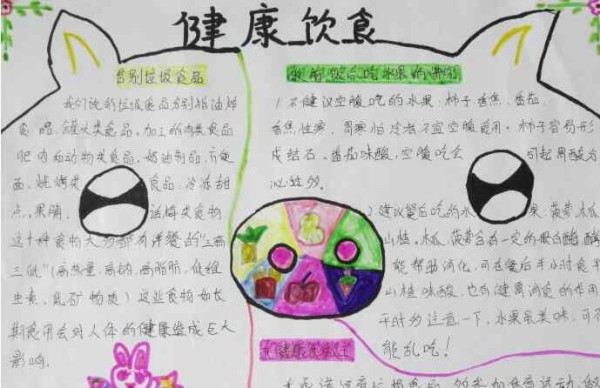 健康饮食
告别垃圾食品
我们说的垃圾食品分别指油炸
食品、罐头类食品、加工的肉类食品
肥肉和动物类食品、奶油制品、方便
面、烧烤类 食品、冷冻甜
点、果脯、 类食物
这十种食物大 都有 的“三高
三低”(高热量、高钠、高脂肪、低维
生素、低矿物质)这些食物如长
期食用会对人体的健康造成巨大
影响。
吃水果的
1.不建议空腹吃的水果:柿子、香蕉、番茄,
香蕉性寒,胃寒怕冷者不宜空腹食用。柿子容易形
成结石。番茄味酸,空腹吃会 引起胃酸分
泌过多。
2.建议 吃的水 果:菠萝、木瓜、
山楂。木瓜、菠萝含有一定的蛋白酶,
能帮助消化,可在餐后半小时食
山楂味酸,也有健胃消食的作用
平时 注意一下,水果虽美味,可不
能乱吃!
健康